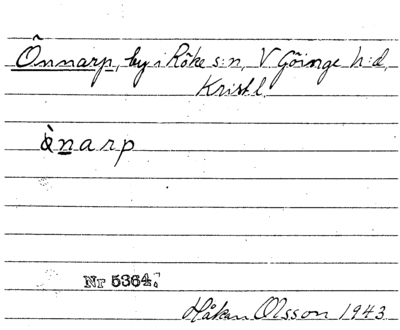 Önnarp, by i Röke s:n, V. Göinge h:d,
Krist. l.
ònarp
Nr 5364.
Håkan Olsson 1943